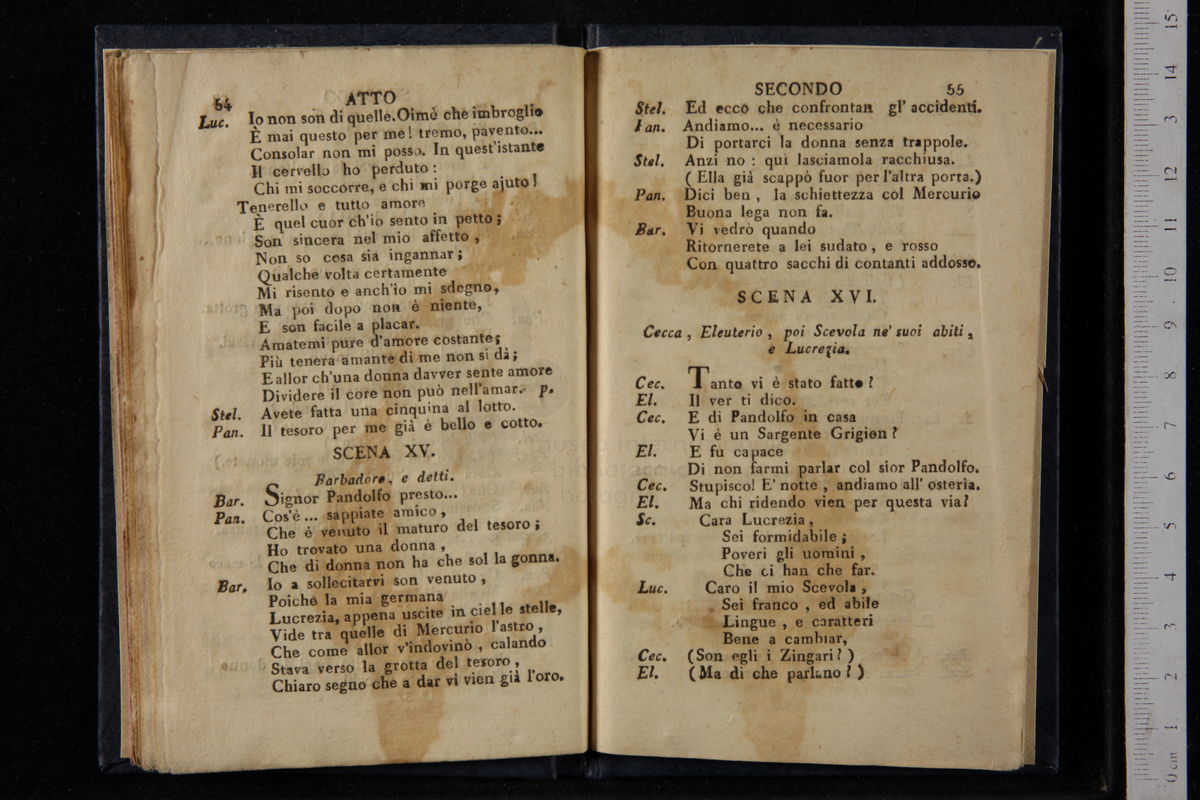 54
ATTO
Luc. Io non son di quelle. Oimè che imbroglio
È mai questo per me! tremo, pavento...
Consolar non mi posso. In quest'istante
Il cervello ho perduto:
Chi mi soccorre, e chi mi porge ajuto!
Tenerello e tutto amore
È quel cuor ch'io sento in petto;
Son sincera nel mio affetto,
Non so cosa sia ingannar;
Qualche volta certamente
Mi risento e anch'io mi sdegno,
Ma poi dopo non è niente,
E son facile a placar.
Amatemi pure d'amore costante;
Più tenera amante di me non si dà;
E allor ch'una donna davver sente amore
Dividere il core non può nell'amar. p.
Stel. Avete fatta una cinquina al lotto.
Pan. Il tesoro per me già è bello e cotto.
SCENA XV.
Barbadoro, e detti.
Bar. Signor Pandolfo presto...
Pan. Cos'è... sappiate amico,
Che è venuto il maturo del tesoro;
Ho trovato una donna,
Che di donna non ha che sol la gonna.
Bar. Io a sollecitarvi son venuto,
Poichè la mia germana
Lucrezia, appena uscite in ciel le stelle,
Vide tra quelle di Mercurio l'astro,
Che come allor v'indovinò, calando
Stava verso la grotta del tesoro,
Chiaro segno che a dar vi vien già l'oro.
SECONDO
55
Stel. Ed ecco che confrontan gl'accidenti.
Pan. Andiamo... è necessario
Di portarci la donna senza trappole.
Stel. Anzi no: qui lasciamola racchiusa.
(Ella già scappò fuor per l'altra porta.)
Pan. Dici ben, la schiettezza col Mercurio
Buona lega non fa.
Bar. Vi vedrò quando
Ritornerete a lei sudato, e rosso
Con quattro sacchi di contanti addosso.
SCENA XVI.
Cecca, Eleuterio, poi Scevola ne' suoi abiti,
e Lucrezia.
Cec. Tanto vi è stato fatto?
El. Il ver ti dico.
Cec. E di Pandolfo in casa
Vi è un Sargente Grigion?
El. E fu capace
Di non farmi parlar col sior Pandolfo.
Cec. Stupisco! E' notte, andiamo all' osteria.
El. Ma chi ridendo vien per questa via?
Sc. Cara Lucrezia,
Sei formidabile;
Poveri gli uomini,
Che ci han che far.
Luc. Caro il mio Scevola,
Sei franco, ed abile
Lingue, e caratteri
Bene a cambiar,
Cec. (Son egli i Zingari?)
El. (Ma di che parlano?)
0 cm 1 2 3 4 5 6 7 8 9 10 11 12 13 14 15